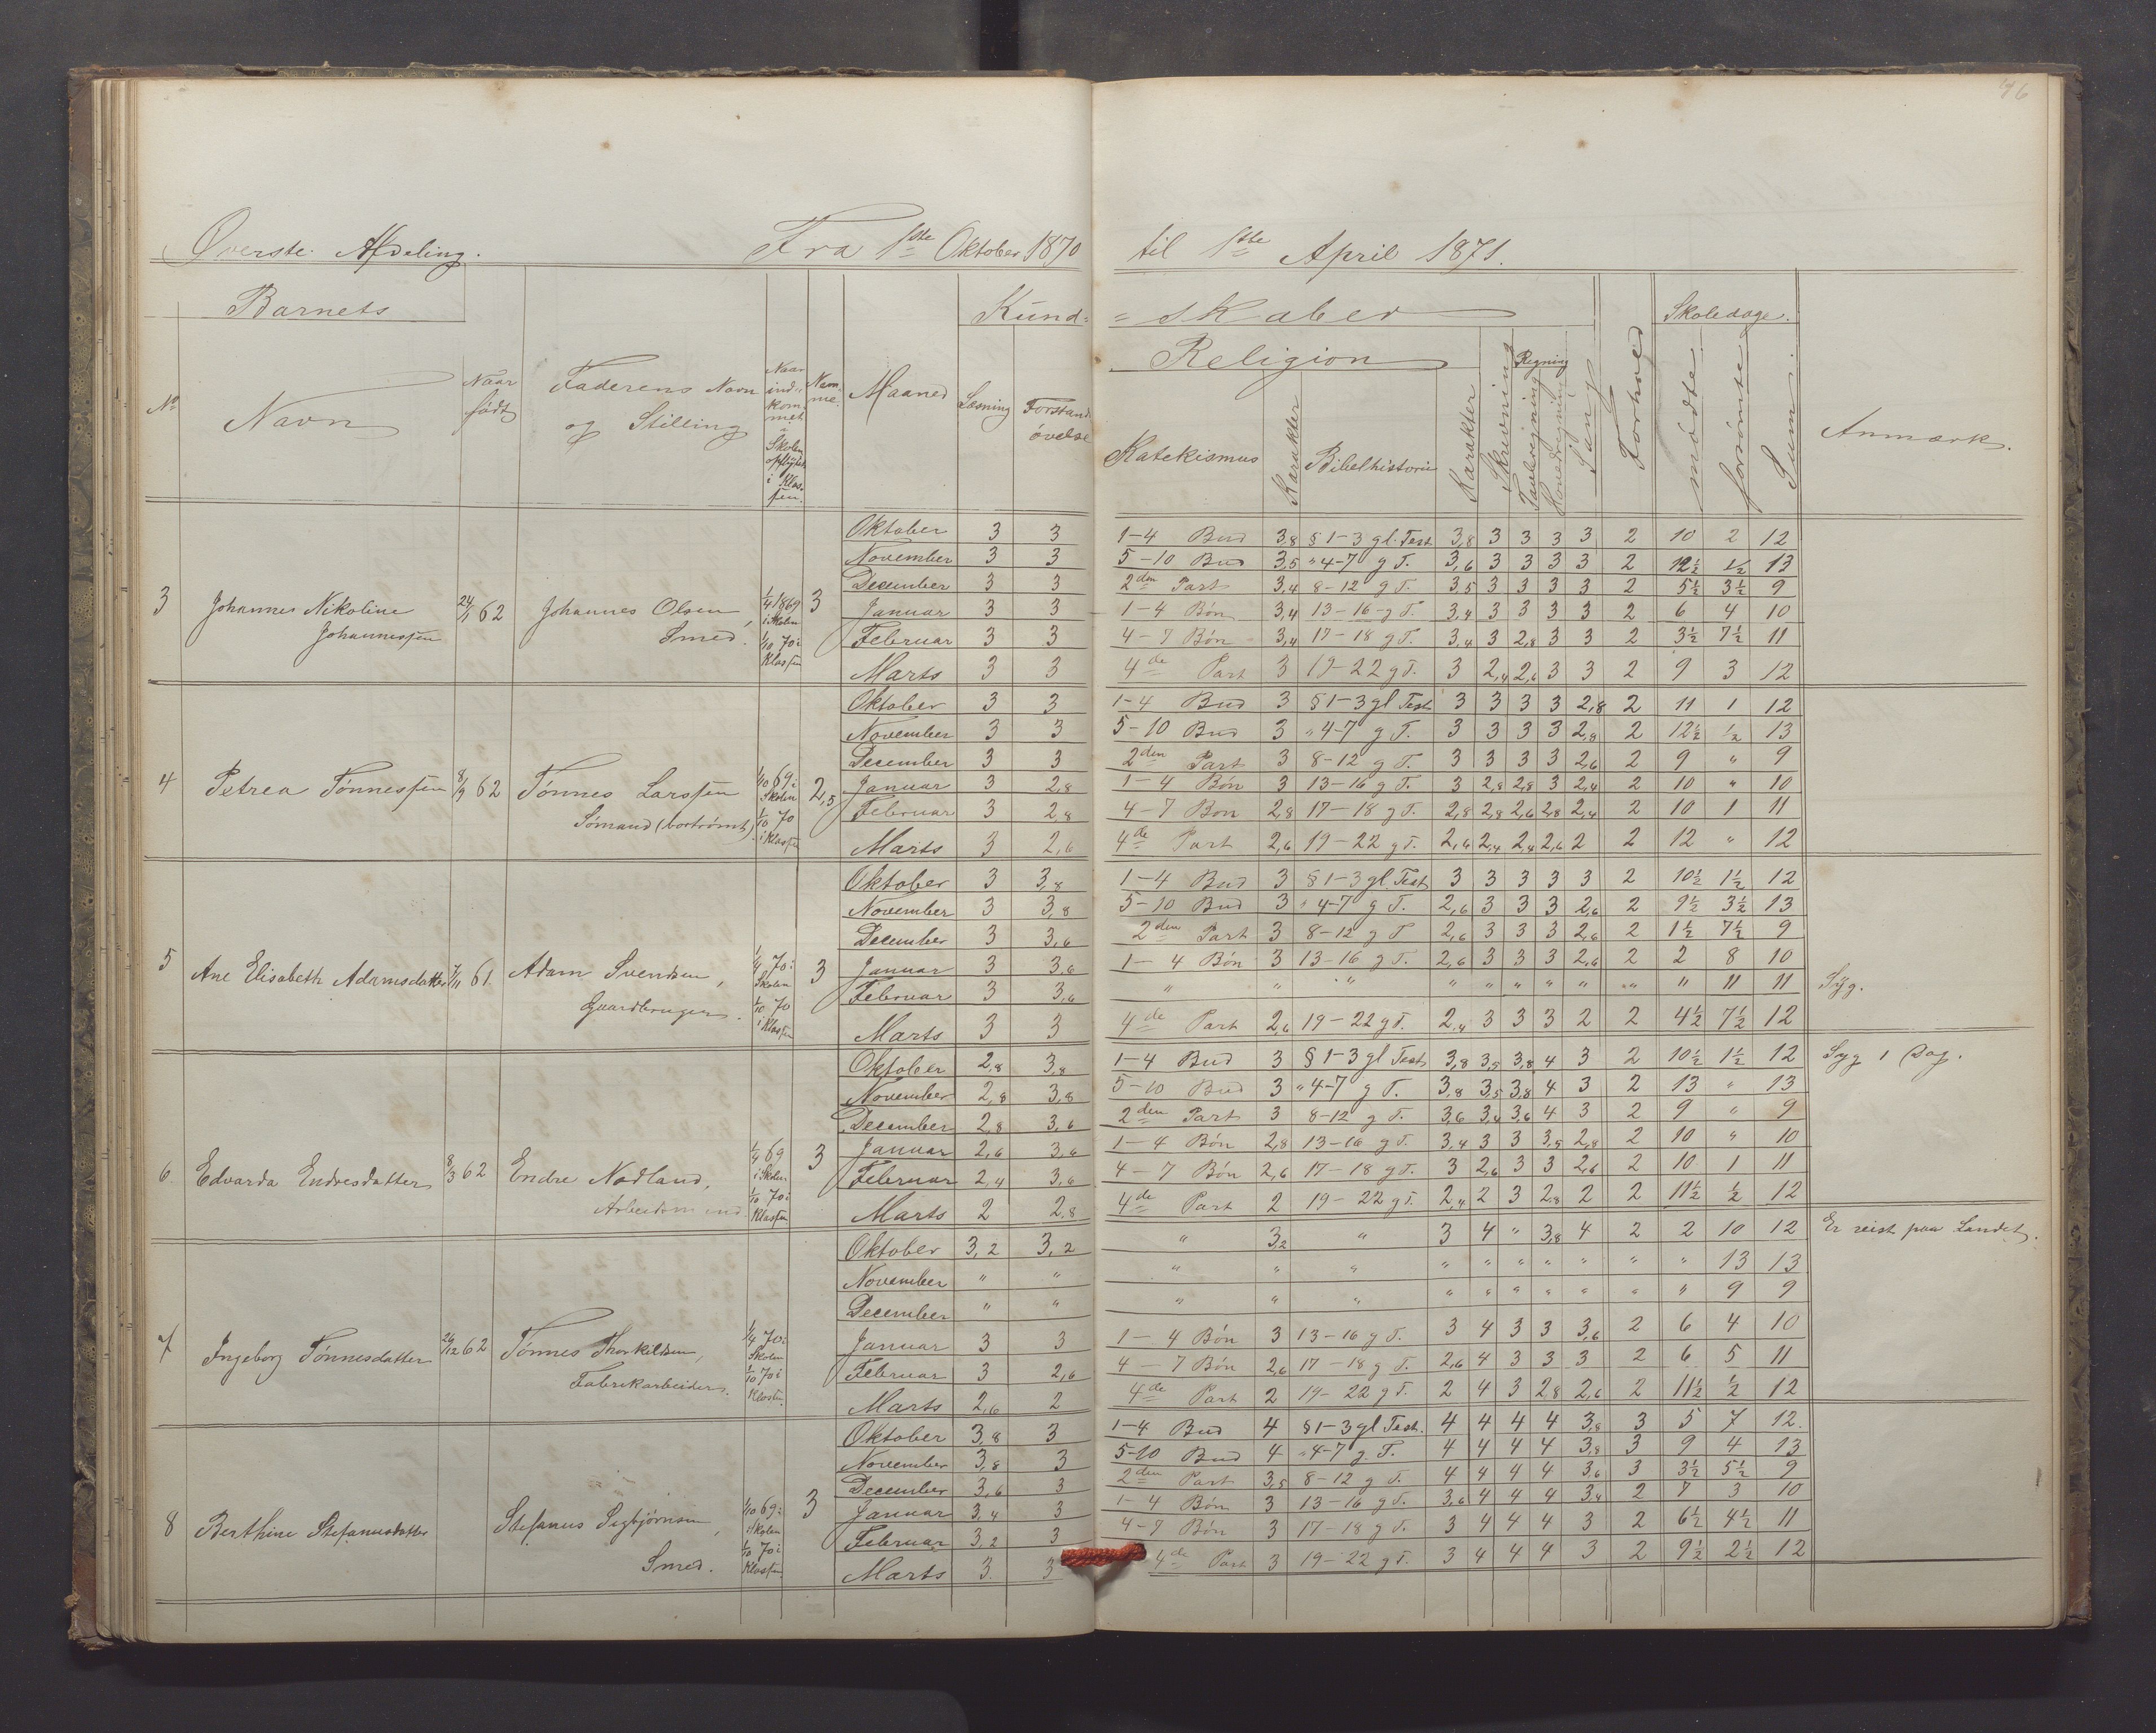 176
Øverste Afdeling. Fra 1ste Oktober 1870 til 1ste April 1871.
Barnets Kund- =skaber Skoledage.
Religion Regning
No Navn Naar født Faderens Navn og Stilling Naar indkommet i Skolen opflyttet i Klassen. Maaned Læsning Forstandsøvelse Katekismus Karakter Bibelhistorie Karakter Skrivning Tavleregning Hovedregning Sang Forhold mødte forsømte Sum Anmærk.
3 Johanne Nikoline Johannessen 24/1 62 Johannes Olsen, Smed. 1/4 1869 i Skolen 1/10 70 i Klassen 3
Oktober 3 3 1-4 Bud 3,8 § 1-3 gl. Test. 3,8 3 3 3 3 2 10 2 12
November 3 3 5-10 Bud 3,5 " 4-7 g T. 3,6 3 3 3 3 2 12½ ½ 13
December 3 3 2den Part 3,4 8-12 g T. 3,5 3 3 3 3 2 5½ 3½ 9
Januar 3 3 1-4 Bøn 3,4 13-16 g T. 3,4 3 3 3 3 2 6 4 10
Februar 3 3 4-7 Bøn 3,4 17-18 g T. 3,4 3 2,8 3 3 2 3½ 7½ 11
Marts 3 3 4de Part 3 19-22 g T. 3 2,4 2,6 3 3 2 9 3 12
4 Petrea Tønnessen 8/9 62 Tønnes Larssen Sømand (bortrømt) 1/10 69 i Skolen 1/10 70 i Klassen 2,5
Oktober 3 3 1-4 Bud 3 § 1-3 gl Test 3 3 3 3 2,8 2 11 1 12
November 3 3 5-10 Bud 3 " 4-7 g T. 3 3 3 3 2,8 2 12½ ½ 13
December 3 3 2den Part 3 8-12 g T. 3 3 3 3 2,6 2 9 " 9
Januar 3 2,8 1-4 Bøn 3 13-16 g T. 3 2,8 2,8 3 2,4 2 10 " 10
Februar 3 2,8 4-7 Bøn 2,8 17-18 g T. 2,8 2,8 2,6 2,8 2,4 2 10 1 11
Marts 3 2,6 4de Part 2,6 19-22 g T. 2,6 2,4 2,4 2,6 2 2 12 " 12
5 Ane Elisabeth Adamsdatter 7/11 61 Adam Svendsen, Gaardbruger. 1/4 70 i Skolen 1/10 70 i Klassen 3
Oktober 3 3,8 1-4 Bud 3 § 1-3 gl. Test 3 3 3 3 3 2 10½ 1½ 12
November 3 3,8 5-10 Bud 3 " 4-7 g T. 2,6 3 3 3 2,6 2 9½ 3½ 13
December 3 3,6 2den Part 3 8-12 g T 2,6 3 3 3 2,6 2 1½ 7½ 9
Januar 3 3,6 1-4 Bøn 3 13-16 g T. 2,6 3 3 3 2,6 2 2 8 10
Februar 3 3,6 " " " " " " " " " " 11 11 Syg.
Marts 3 3 4de Part 2,6 19-22 g T. 2,4 3 3 3 2 2 4½ 7½ 12
6 Edvarda Endresdatter 8/3 62 Endre Nodland, Arbeidsmand 1/4 69 i Skolen 1/10 70 i Klassen 3
Oktober 2,8 3,8 1-4 Bud 3 § 1-3 gl Test 3,8 3,5 3,8 4 3 2 10½ 1½ 12 Syg 1 Dag.
November 2,8 3,8 5-10 Bud 3 " 4-7 g T. 3,8 3,5 3,8 4 3 2 13 " 13
December 2,8 3,6 2den Part 3 8-12 g T. 3,6 3,4 3,6 4 3 2 9 " 9
Januar 2,6 3,6 1-4 Bøn 2,8 13-16 g T. 3,4 3 3 3,5 2,8 2 10 " 10
Februar 2,4 3,6 4-7 Bøn 2,6 17-18 g T. 3 2,6 3 3 2,6 2 10 1 11
Marts 2 2,8 4de Part 2 19-22 g T. 2,4 2 3 2,8 2 2 11½ ½ 12
7 Ingeborg Tønnesdatter 29/12 62 Tønnes Thorkildsen, Fabrikarbeider. 1/4 70 i Skolen 1/10 70 i Klassen
Oktober 3,2 3,2 " 3,2 " 3 4 " 3,8 4 2 2 10 12 Er reist paa Landet.
November " " " " " " " " " " " " 13 13
December " " " " " " " " " " " " 9 9
Januar 3 3 1-4 Bøn 3 13-16 g T. 3 4 3 3 3,6 2 6 4 10
Februar 3 2,6 4-7 Bøn 2,6 17-18 g T. 2,6 4 3 3 3 2 6 5 11
Marts 2,6 2 4de Part 2 19-22 g T. 2 4 3 2,8 2,6 2 11½ ½ 12
8 Berthine Stefanusdatter Stefanus Sigbjørnsen, Smed. 1/10 69 i Skolen 1/10 70 i Klassen 3
Oktober 3,8 3 1-4 Bud 4 § 1-3 gl Test. 4 4 4 4 3,8 3 5 7 12
November 3,8 3 5-10 Bud 4 " 4-7 g. T. 4 4 4 4 3,8 3 9 4 13
December 3,6 3 2den Part 3,5 8-12 g T. 4 4 4 4 3,6 3 3½ 5½ 9
Januar 3,4 3 1-4 Bøn 3 13-16 g T. 3,6 4 4 4 3,4 2 7 3 10
Februar 3,2 3 4-7 Bøn 3 17-18 g T. 3 4 4 4 3 2 6½ 4½ 11
Marts 3 3 4de Part 3 19-22 g T. 3 4 4 4 3 2 9½ 2½ 12